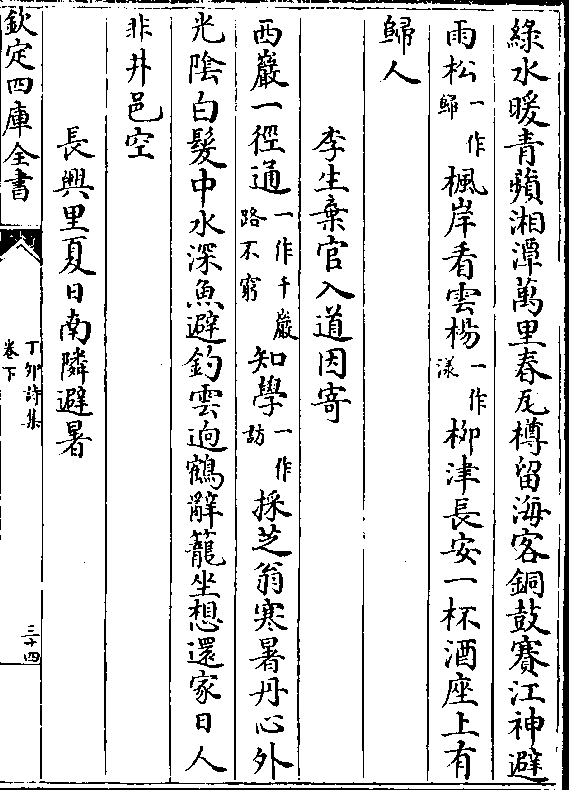 綠水暖青蘋湘潭萬里春瓦樽留海客銅鼓賽江神避
雨松一作歸楓岸看雲楊一作漾柳津長安一杯酒座上有
歸人
李生棄官入道因寄
西巖一徑通一作千巖路不窮知學一作訪採芝翁寒暑丹心外
光陰白髮中水深魚避釣雲逈鶴辭籠坐想還家日人
非井邑空
長興里夏日南隣避暑
欽定四庫全書
丁卯詩集
卷下
三十四